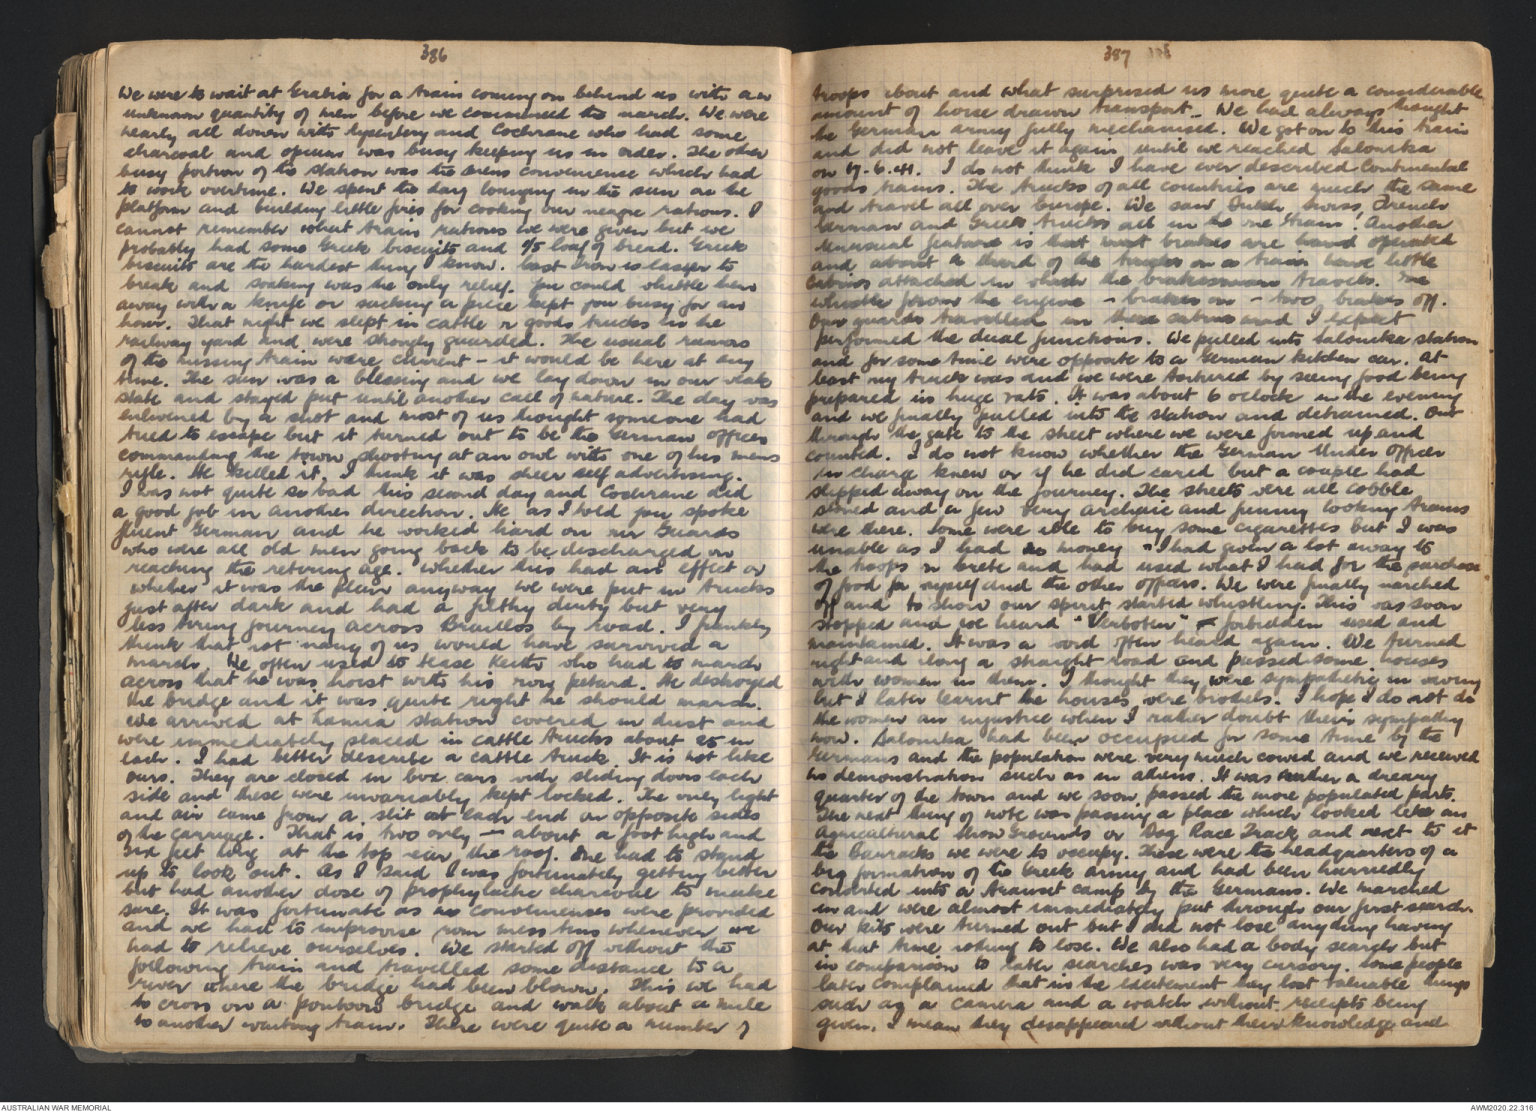 386
We were to wait at Gravia for a train coming on behind us with an
unknown quantity of men before we commenced the march. We were
nearly all down with dysentery and Cochrane who had some
charcoal and opium was busy keeping us in order. The other
busy portion of the station was the mens convenience which had
to work overtime. We spent the day lounging in the sun on the
platform and building little fires for cooking our meagre rations. I
cannot remember what train rations we were given but we
probably had some Greek biscuits and 1/5 loaf of bread. Greek
biscuits are the hardest thing I know. Cast iron is easier to
break and soaking was the only relief. You could whittle them
away with a knife or sucking a piece kept you busy for an
hour. That night we slept in cattle or goods trucks in the
railway yard and were strongly guarded. The usual rumors
of the missing train were current - it would be here at any
time. The sun was a blessing and we lay down in our weak
state and stayed put until another call of nature. The day was
enlivened by a shot and most of us thought someone had
tried to escape but it turned out to be the German officer
commanding the town shooting at an owl with one of his mens
rifle. He killed it, I think it was sheer self advertising.
I was not quite so bad this second day and Cochrane did
a good job in another direction. He as I told you spoke
fluent German and he worked hard on our Guards
who were all old men going back to be discharged on
reaching the retiring age. Whether this had an effect or
whether it was the plan anyway we were put in trucks
just after dark and had a filthy dusty but very
less tiring journey across Brallos by road. I frankly
think that not many of us would have survived a
march. We often used to tease Keith who had to march
across that he was hoist with his own petard. He destroyed
the bridge and it was quite right he should march.
We arrived at Lamia station covered in dust and
were immediately placed in cattle trucks about 25 in
each. I had better describe a cattle truck. It is not like
ours. They are closed in box cars with sliding doors each
side and these were invariably kept locked. The only light
and air came from a slit at each end on opposite sides
of the carriage. That is two only - about a foot high and
six feet long at the top near the roof. One had to stand
up to look out. As I said I was fortunately getting better
but had another dose of prophylactic charcoal to make
sure. It was fortunate as no conveniences were provided
and we had to improvise from mess tins whenever we
had to relieve ourselves. We started off without the
following train and travelled some distance to a
river where the bridge had been blown. This we had
to cross on a pontoon bridge and walk about a mile
to another waiting train. There were quite a number of
387
troops about and what surprised us more quite a considerable
amount of horse drawn transport. We had always thought
the German army fully mechanised. We got on to this train
and did not leave it again until we reached Salonika
on 17.6.41. I do not think I have ever described Continental
goods trains. The trucks of all countries are much the same
and travel all over Europe. We saw Dutch, Swiss, French
German and Greek trucks all in the one train! Another
unusual feature is that most brakes are hand operated
and about a third of the trucks on a train have little
cabins attached in which the brakesman travels. One
whistle from the engine - brakes on - two, brakes off.
Our guards travelled in these cabins and I expect
performed the dual functions. We pulled into Salonika station
and for some time were opposite to a German kitchen car. At
least my truck was and we were tortured by seeing food being
prepared in huge vats. It was about 6 oclock in the evening
and we finally pulled into the station and detrained. Out
through the gate to the street where we were formed up and
counted. I do not know whether the German Under officer
in charge knew or if he did cared but a couple had
slipped away on the journey. The streets were all cobble
stoned and a few very archaic and funny looking trams
were there. Some were able to buy some cigarettes but I was
unable as I had no money. I had given a lot away to
the troops in Crete and had used what I had for the purchase
of food for myself and the other officers. We were finally marched
off and to show our spirit started whistling. This was soon
stopped and we heard "Verboten" forbidden used and
maintained. It was a word often heard again. We turned
right and along a straight road and passed some houses
with women in them. I thought they were sympathetic in waving
but I later learnt the houses were brothels. I hope I do not do
the women an injustice when I rather doubt their sympathy
now. Salonika had been occupied for some time by the
Germans and the population were very much cowed and we received
no demonstration such as in Athens. It was rather a dreary
quarter of the town and we soon passed the more populated parts.
The next thing of note was passing a place which looked like an
Agricultural Show Grounds or Dog Race Track and next to it
the Barracks we were to occupy. These were the headquarters of a
big formation of the Greek Army and had been hurriedly
converted into a transit camp by the Germans. We marched
in and were almost immediately put through our first search.
Our kits were turned out but I did not lose anything having
at that time nothing to lose. We also had a body search but
in comparison to later searches was very cursory. Some people
later complained that in the excitement they lost valuable things
such as a camera and a watch without receipts being
given. I mean they disappeared without their knowledge and
AUSTRALIAN WAR MEMORIAL
AWM2020.22.316